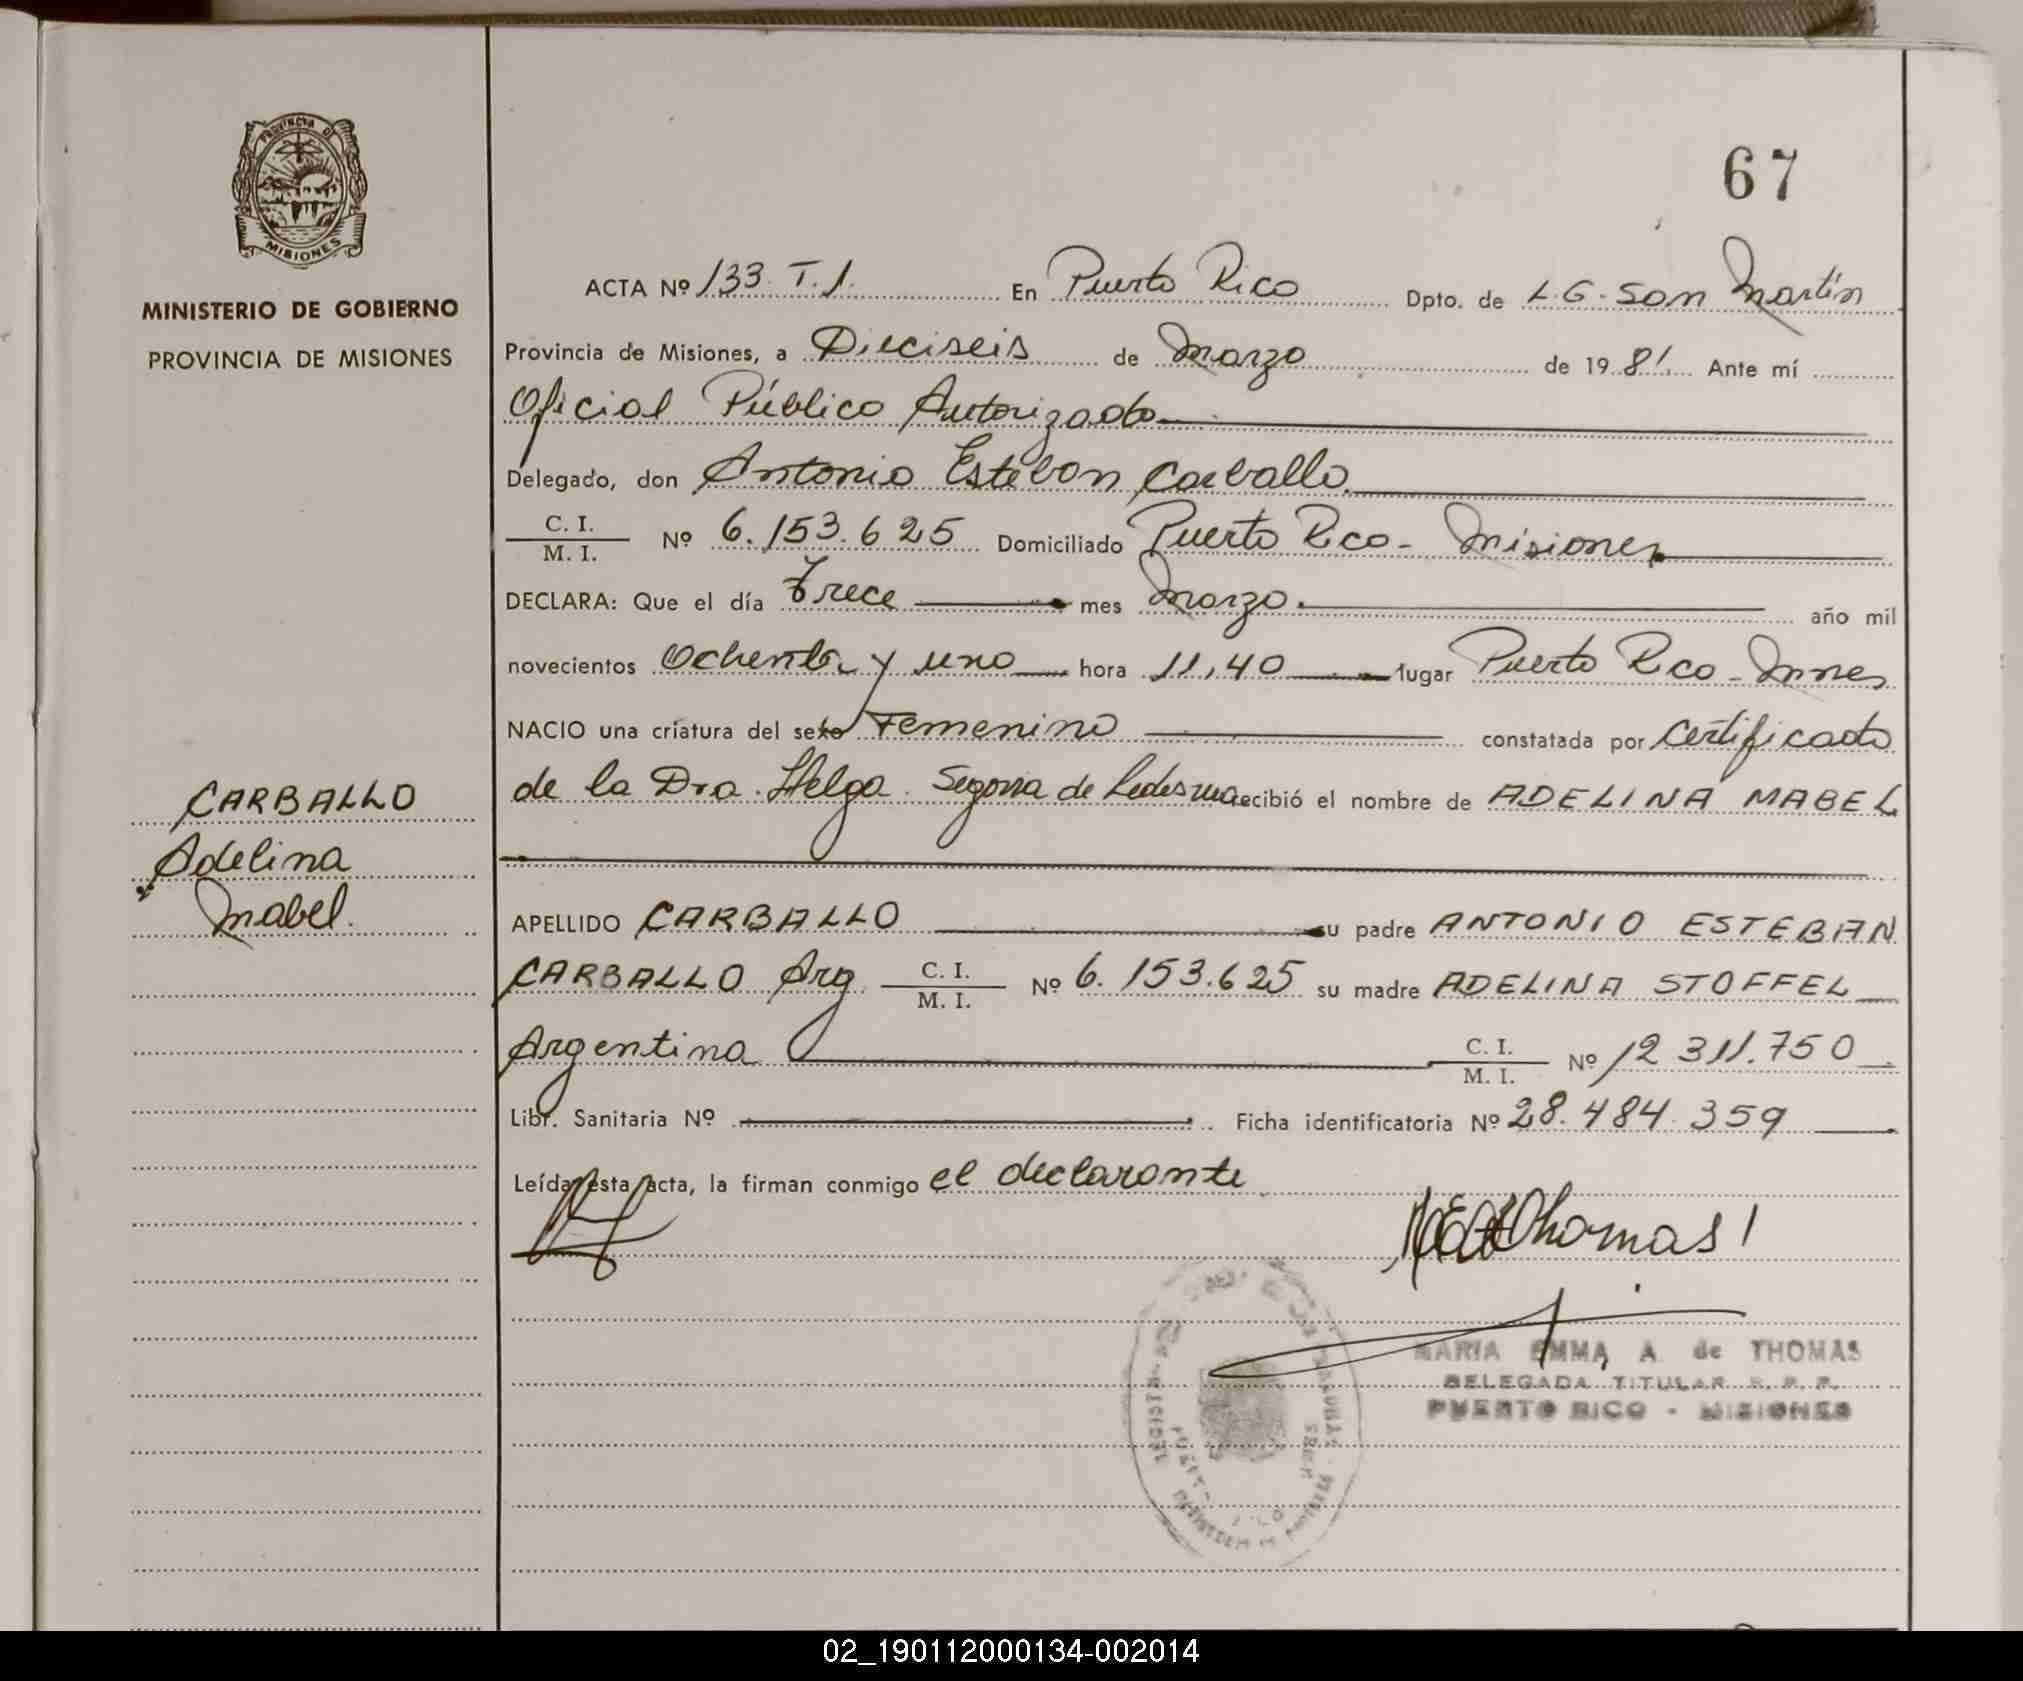 67
PROVINCIA DE
MISIONES
MINISTERIO DE GOBIERNO
PROVINCIA DE MISIONES
ACTA Nº 133. T. 1. En Puerto Rico Dpto. de L.G. San Martín
Provincia de Misiones, a Dieciseis de Marzo de 1981. Ante mí
Oficial Público Autorizado
Delegado, don Antonio Esteban Carballo.
C. I.
M. I. Nº 6.153.625 Domiciliado Puerto Rico - Misiones
DECLARA: Que el día Trece mes Marzo. año mil
novecientos Ochenta y uno hora 11,40 lugar Puerto Rico - Mnes
NACIO una criatura del sexo Femenino constatada por Certificado
de la Dra. Helga Segovia de Ledesma recibió el nombre de ADELINA MABEL
CARBALLO
Adelina
Mabel.
APELLIDO CARBALLO su padre ANTONIO ESTEBAN
CARBALLO Arg C. I.
M. I. Nº 6.153.625 su madre ADELINA STOFFEL
Argentina C. I.
M. I. Nº 12 311.750
Libr. Sanitaria Nº Ficha identificatoria Nº 28.484.359
Leída esta acta, la firman conmigo el declarante
Thomas
MARIA EMMA A. de THOMAS
DELEGADA TITULAR R. P. P.
PUERTO RICO - MISIONES
02_190112000134-002014